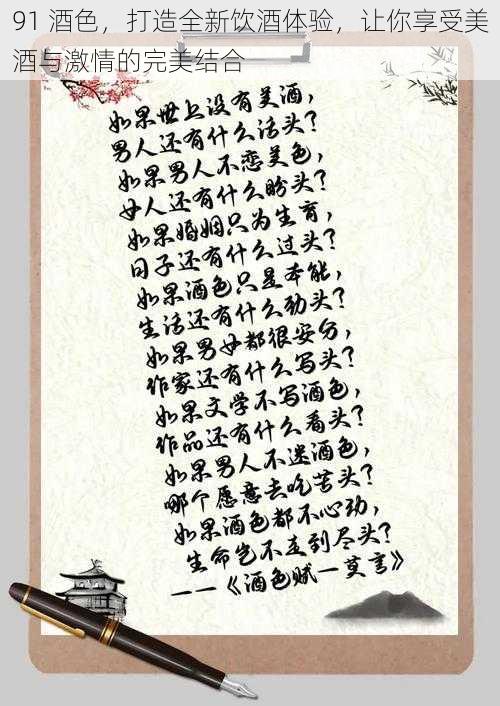 91 酒色，打造全新饮酒体验，让你享受美
酒与激情的完美结合
如果世上没有美酒，
男人还有什么活头？
如果男人不恋美色，
女人还有什么盼头？
如果婚姻只为生育，
日子还有什么过头？
如果酒色只是本能，
生活还有什么劲头？
如果男女都很安分，
作家还有什么写头？
如果文学不写酒色，
作品还有什么看头？
如果男人不迷酒色，
哪个愿意去吃苦头？
如果酒色都不心动，
生命岂不直到尽头？
——《酒色赋—莫言》